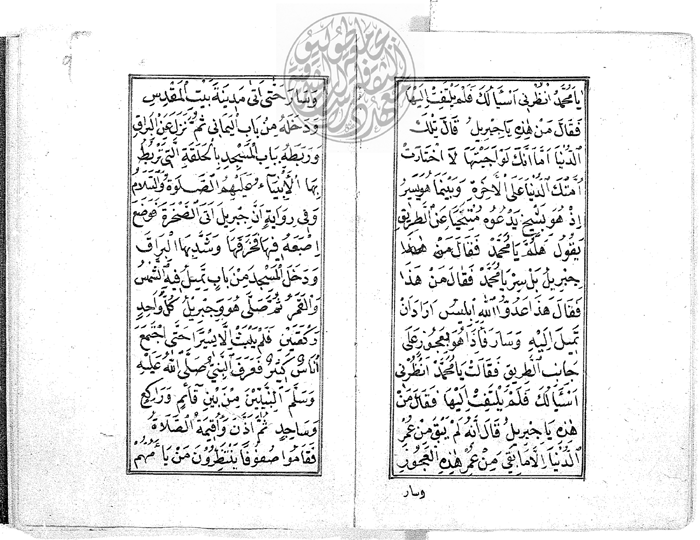 يا محمد انظرني اسيالك فلم يلتفت اليها
فقال من هذه يا جبريل قال تلك
الدنيا اما انك لو اجبتها لاختارت
امتك الدنيا على الاخرة وبينما هو يسير
اذ هو بشيخ يدعوه متنحيا عن الطريق
يقول هلم يا محمد فقال من هذا
جبريل بل سر يا محمد فقال من هذا
فقال هذا عدو الله ابليس اراد ان
تميل اليه وسار فاذا هو بعجوز على
جانب الطريق فقالت يا محمد انظرني
اسيالك فلم يلتفت اليها فقال من
هذه يا جبريل قال انه لم يبق من عمر
الدنيا الا ما بقي من عمر هذه العجوز
وسار
وسار حتى اتى مدينة بيت المقدس
ودخله من باب اليماني ثم نزل عن البراق
وربطه باب المسجد بالحلقة التي تربط
بها الأنبياء عليهم الصلوة والسلام
وفي رواية ان جبريل اتى الصخرة فوضع
اصبعه فيها فخرقها وشد بها البراق
ودخل المسجد من باب تميل فيه الشمس
والقمر ثم صلى هو وجبريل كل واحد
ركعتين فلم يلبث الا يسيرا حتى اجتمع
اناس كثير فعرف النبي صلى الله عليه
وسلم النبيين من بين قائم وراكع
وساجد ثم اذن واقيمة الصلاة
فقاموا صفوفا ينتظرون من يأمهم